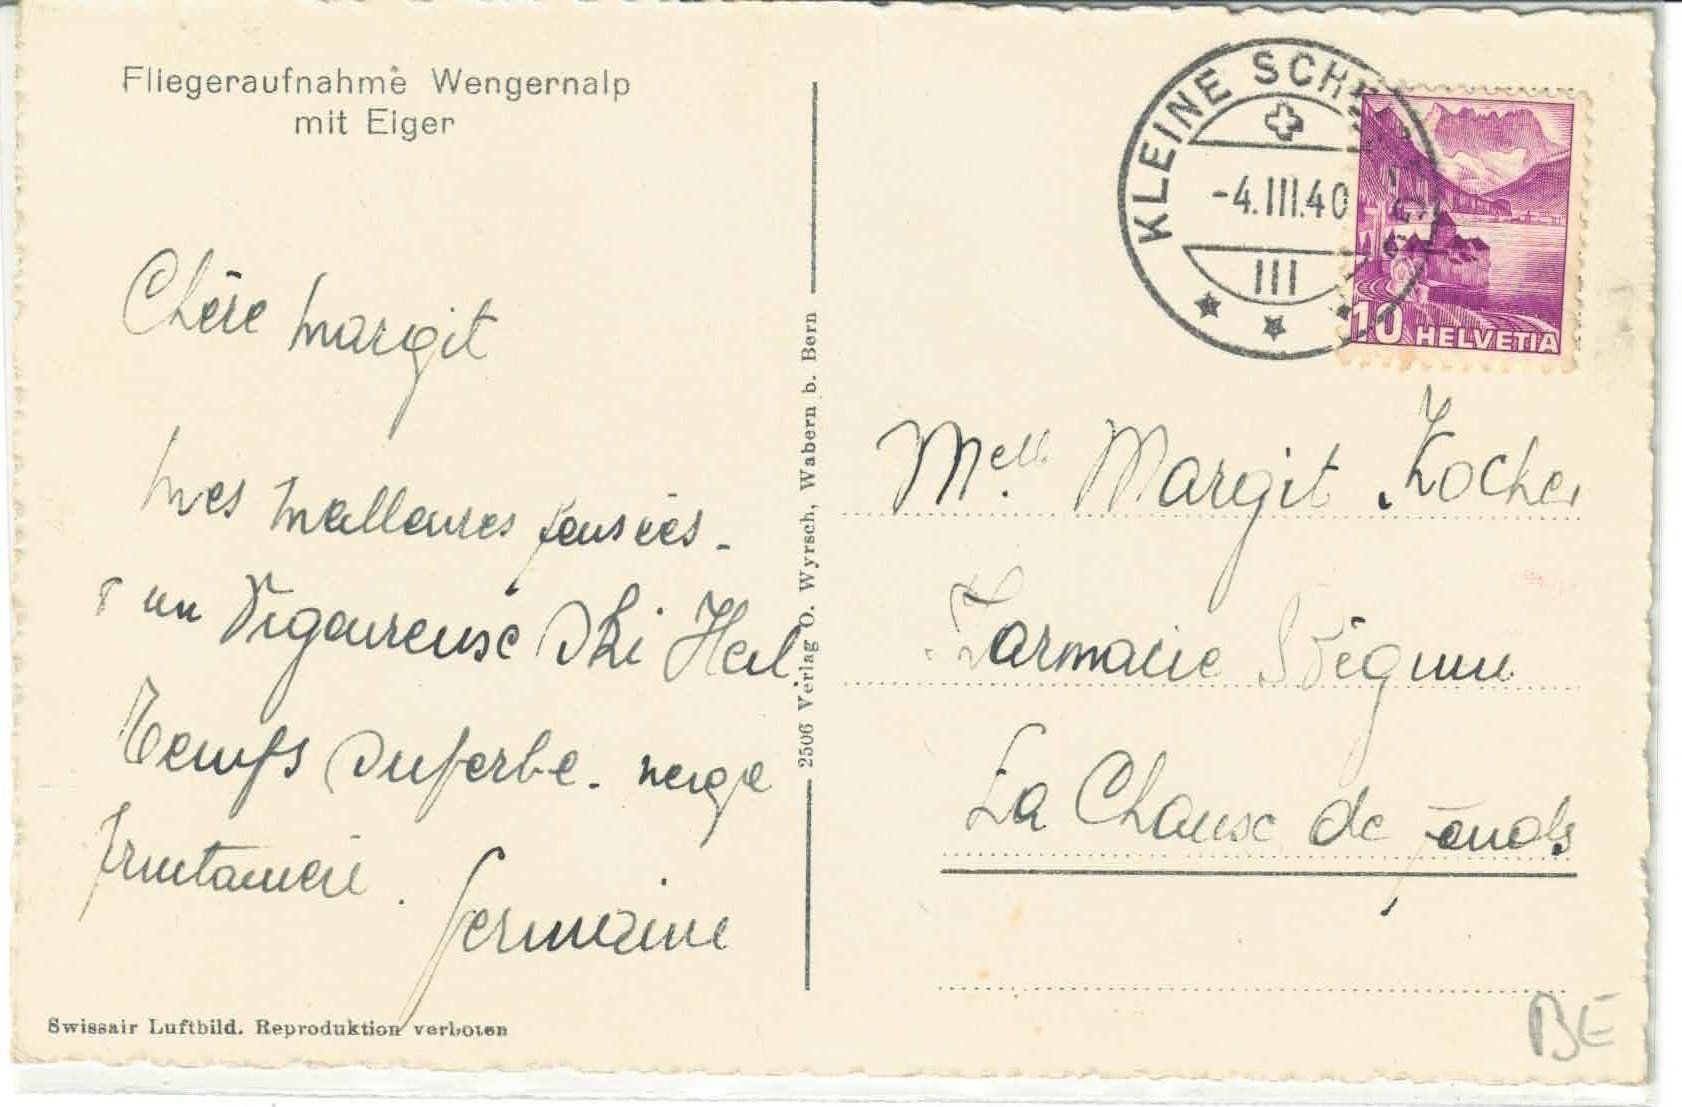 Fliegeraufnahme Wengernalp
mit Eiger
Chère Margit
Mes meilleures pensées -
un Vigoureuse Ski Heil.
Temps superbe. neige
Germaine
Swissair Luftbild. Reproduktion verboten
2506 Verlag O. Wyrsch, Wabern b. Bern
KLEINE SCHEIDEGG
-4.III.40
III
10 HELVETIA
Mell. Margit Kocher
La Chaux de fonds
BE